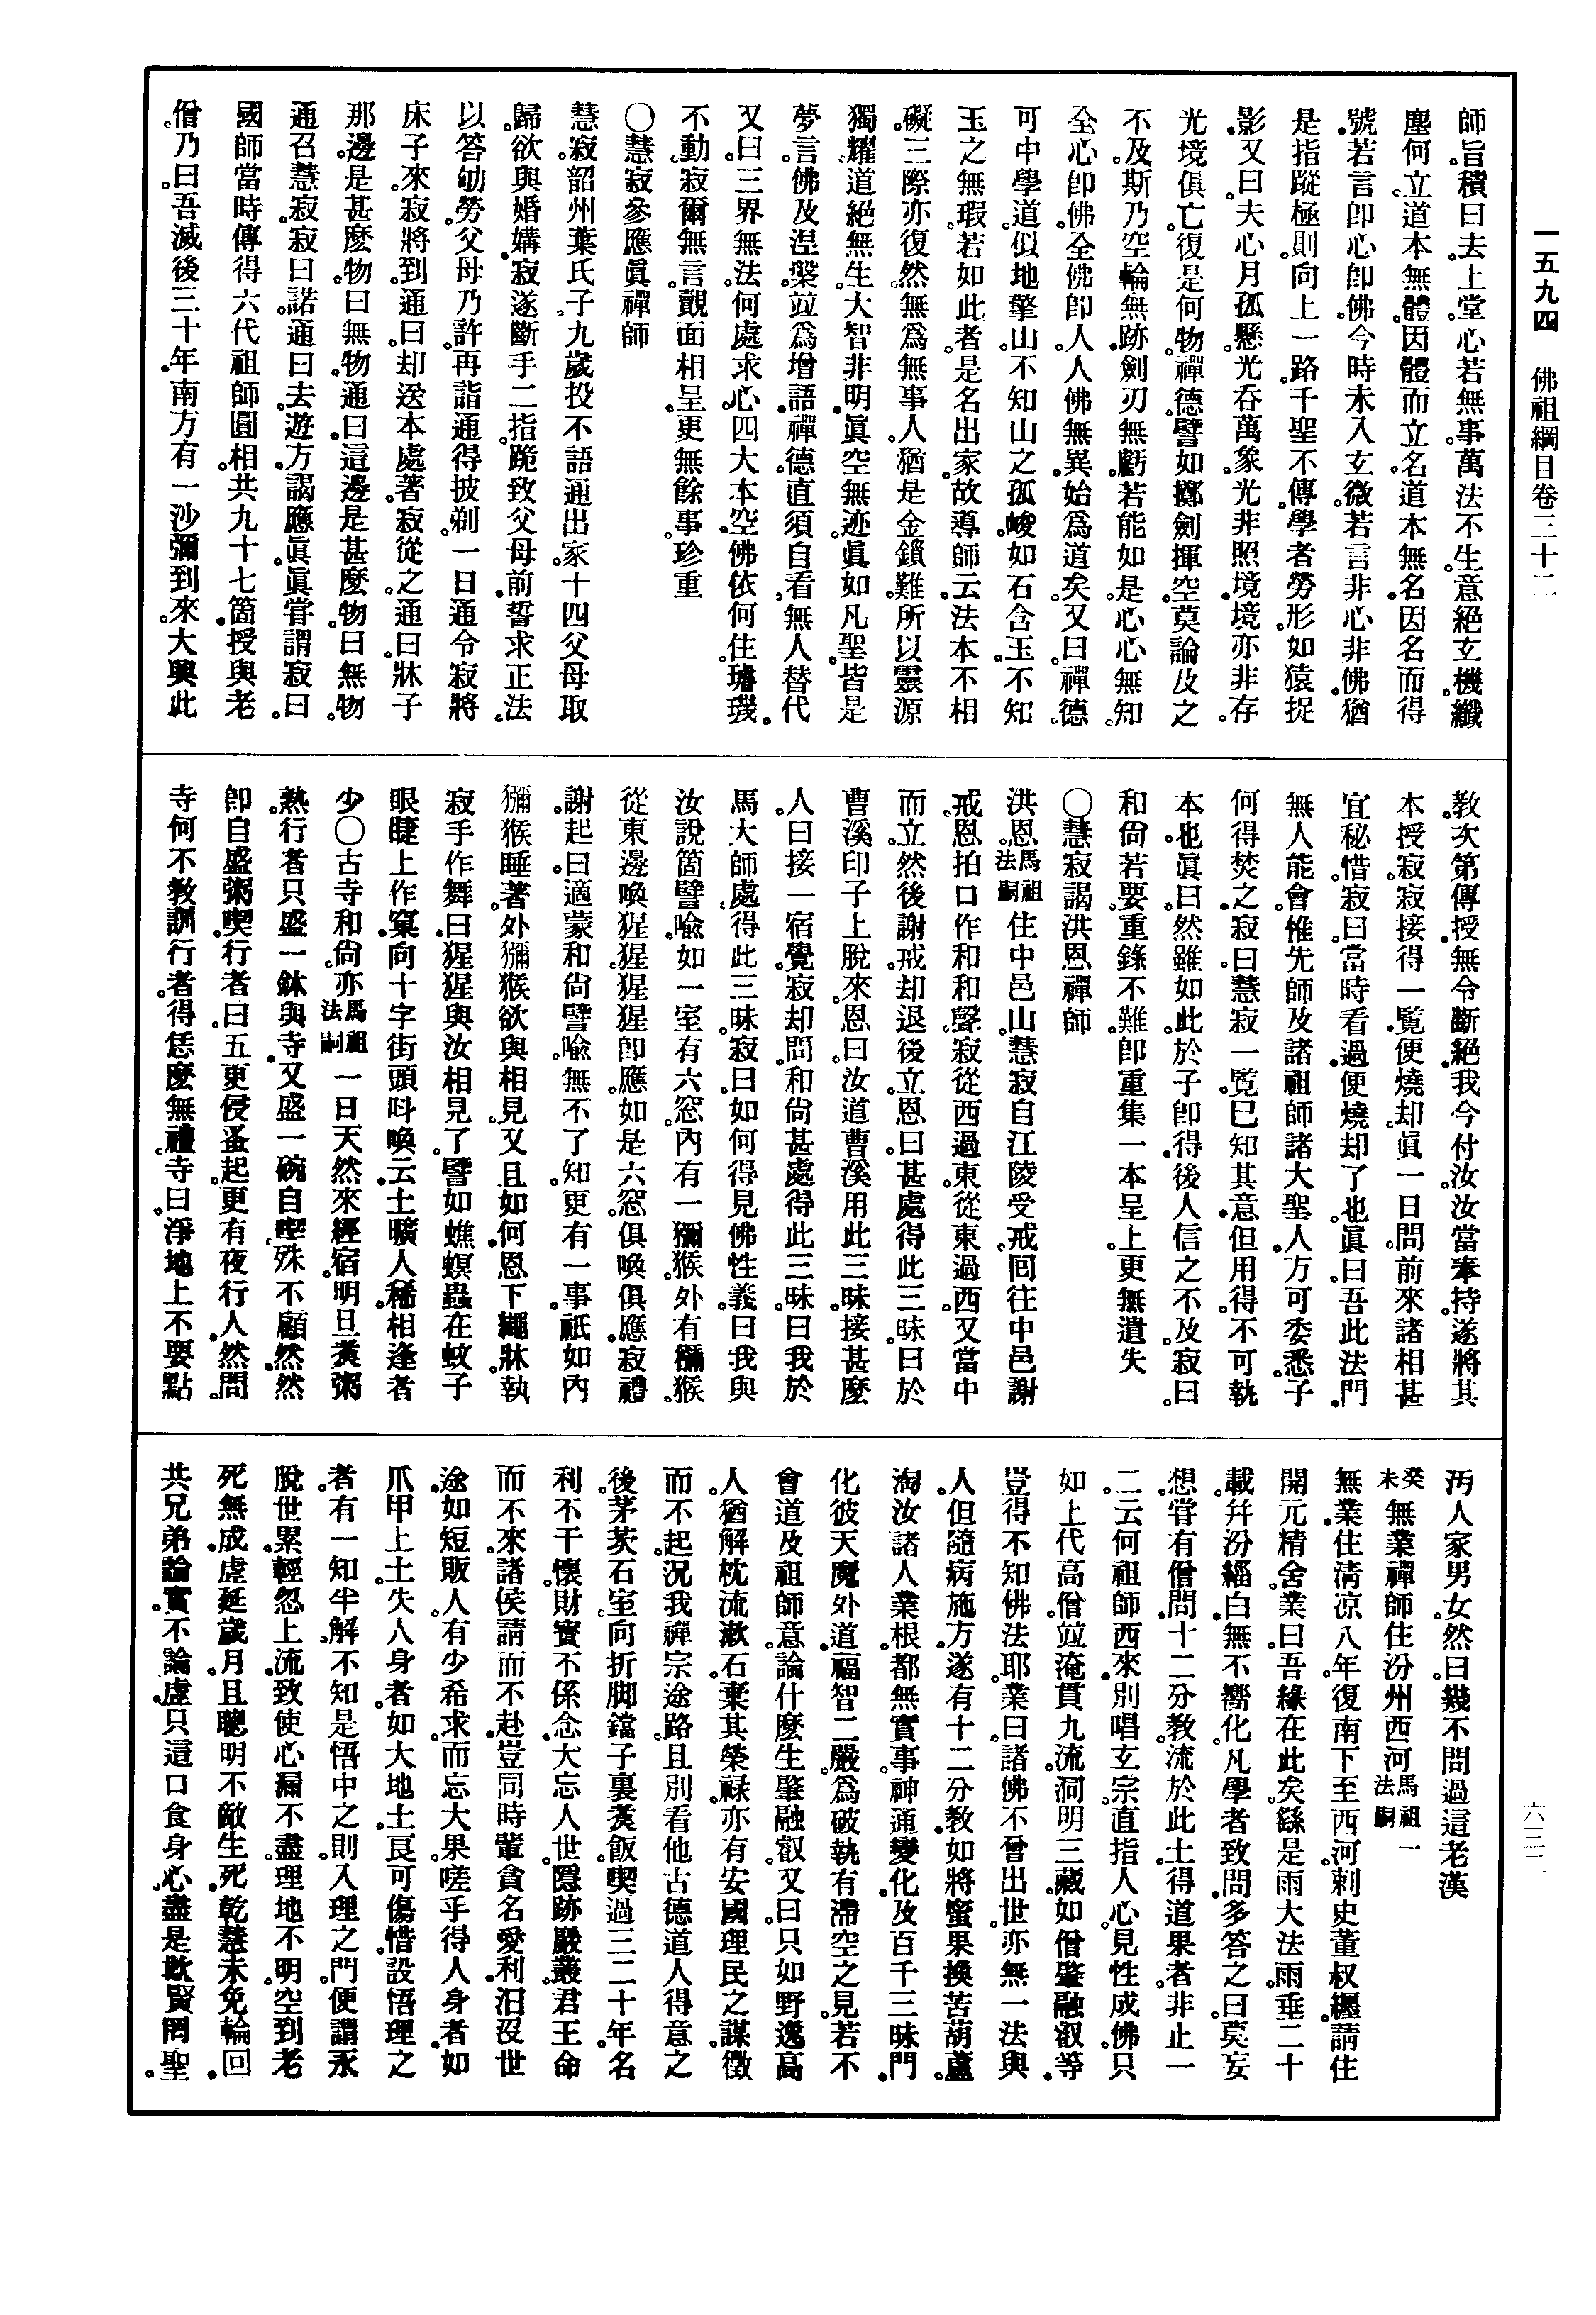 一五九四　佛祖綱目卷三十二
六三二
師。旨積曰去。上堂。心若無事。萬法不生。意絕玄機。纖
塵何立。道本無體。因體而立名。道本無名。因名而得
號。若言卽心卽佛。今時未入玄微。若言非心非佛。猶
是指蹤極則。向上一路。千聖不傳。學者勞形。如猿捉
影。又曰。夫心月孤懸。光吞萬象。光非照境。境亦非存。
光境俱亡。復是何物。禪德。譬如擲劍揮空。莫論及之
不及。斯乃空輪無跡。劍刃無虧。若能如是。心心無知。
全心卽佛。全佛卽人。人佛無異。始爲道矣。又曰。禪德。
可中學道。似地擎山。不知山之孤峻。如石含玉。不知
玉之無瑕。若如此者。是名出家。故導師云。法本不相
礙。三際亦復然。無爲無事人。猶是金鎖難。所以靈源
獨耀。道絕無生。大智非明。眞空無迹。眞如凡聖。皆是
夢言。佛及涅槃。竝爲增語。禪德。直須自看。無人替代。
又曰。三界無法。何處求心。四大本空。佛依何住。璿璣
不動。寂爾無言。覿面相呈。更無餘事。珍重
〇慧寂參應眞禪師
慧寂。韶州葉氏子。九歲投不語通出家。十四父母取
歸。欲與婚媾。寂遂斷手二指。跪致父母前。誓求正法。
以答劬勞。父母乃許。再詣通得披剃。一日通令寂將
床子來。寂將到。通曰。却送本處著。寂從之。通曰。牀子
那邊。是甚麽物。曰無物。通曰。這邊是甚麽物。曰無物。
通召慧寂。寂曰諾。通曰去。遊方。謁應眞。眞嘗謂寂曰。
國師當時。傳得六代祖師圓相。共九十七箇。授與老
僧。乃曰。吾滅後三十年。南方有一沙彌到來。大興此
教。次第傳授。無令斷絕。我今付汝。汝當奉持。遂將其
本授寂。寂接得一覽。便燒却。眞一日問。前來諸相。甚
宜秘惜。寂曰。當時看過。便燒却了也。眞曰。吾此法門。
無人能會。惟先師及諸祖師諸大聖人。方可委悉。子
何得焚之。寂曰。慧寂一覽。已知其意。但用得。不可執
本也。眞曰。然雖如此。於子卽得。後人信之不及。寂曰。
和尙若要。重錄不難。卽重集一本呈上。更無遺失
〇慧寂謁洪恩禪師
洪恩。馬祖法嗣住中邑山。慧寂自江陵受戒。回往中邑謝
戒。恩拍口作和和聲。寂從西過東。從東過西。又當中
而立。然後謝戒。却退後立。恩曰。甚處得此三昧。曰於
曹溪印子上脫來。恩曰。汝道曹溪用此三昧。接甚麽
人。曰接一宿覺。寂却問。和尙甚處得此三昧。曰我於
馬大師處。得此三昧。寂曰。如何得見佛性義。曰我與
汝說箇譬喩。如一室有六窓。內有一獼猴。外有獼猴。
從東邊喚猩猩。猩猩卽應。如是六窓。俱喚俱應。寂禮
謝。起曰。適蒙和尙譬喩。無不了知。更有一事。祇如內
獼猴睡著。外獼猴欲與相見。又且如何。恩下繩牀。執
寂手作舞曰。猩猩與汝相見了。譬如蟭螟蟲。在蚊子
眼睫上作窠。向十字街頭叫喚云。土曠人稀。相逢者
少。〇古寺和尙。亦馬祖法嗣一日天然來經宿。明旦煑粥
熟。行者只盛一鉢與寺。又盛一碗自喫。殊不顧然。然
卽自盛粥喫。行者曰。五更侵蚤起。更有夜行人。然問
寺。何不教訓行者。得恁麽無禮。寺曰。淨地上不要點
汚人家男女。然曰。幾不問過這老漢
癸未無業禪師住汾州西河馬祖法嗣一
無業。住淸凉八年。復南下至西河。刺史董叔纒請住
開元精舍。業曰。吾緣在此矣。繇是雨大法雨。垂二十
載。幷汾緇白。無不嚮化。凡學者致問。多答之曰。莫妄
想。嘗有僧問。十二分教。流於此土。得道果者。非止一
二。云何祖師西來。別唱玄宗。直指人心。見性成佛。只
如上代高僧。竝淹貫九流。洞明三藏。如僧肇融叡等。
豈得不知佛法耶。業曰。諸佛不曾出世。亦無一法與
人。但隨病施方。遂有十二分教。如將蜜果換苦葫蘆。
淘汝諸人業根。都無實事。神通變化。及百千三昧門。
化彼天魔外道。福智二嚴。爲破執有滯空之見。若不
會道。及祖師意。論什麽生肇融叡。又曰。只如野逸高
人。猶解枕流漱石。棄其榮祿。亦有安國理民之謀。徵
而不起。況我禪宗。途路且別。看他古德道人得意之
後。茅茨石室。向折脚鐺子裏。煑飯喫過三二十年。名
利不干懷。財寶不係念。大忘人世。隱跡巖叢。君王命
而不來。諸侯請而不赴。豈同時輩。貪名愛利。汨沒世
途。如短販人。有少希求。而忘大果。嗟乎得人身者。如
爪甲上土。失人身者。如大地土。良可傷惜。設悟理之
者。有一知半解。不知是悟中之則。入理之門。便謂永
脫世累。輕忽上流。致使心漏不盡。理地不明。空到老
死無成。虛延歲月。且聰明不敵生死。乾慧未免輪回。
共兄弟論實不論虛。只這口食身心。盡是欺賢罔聖。